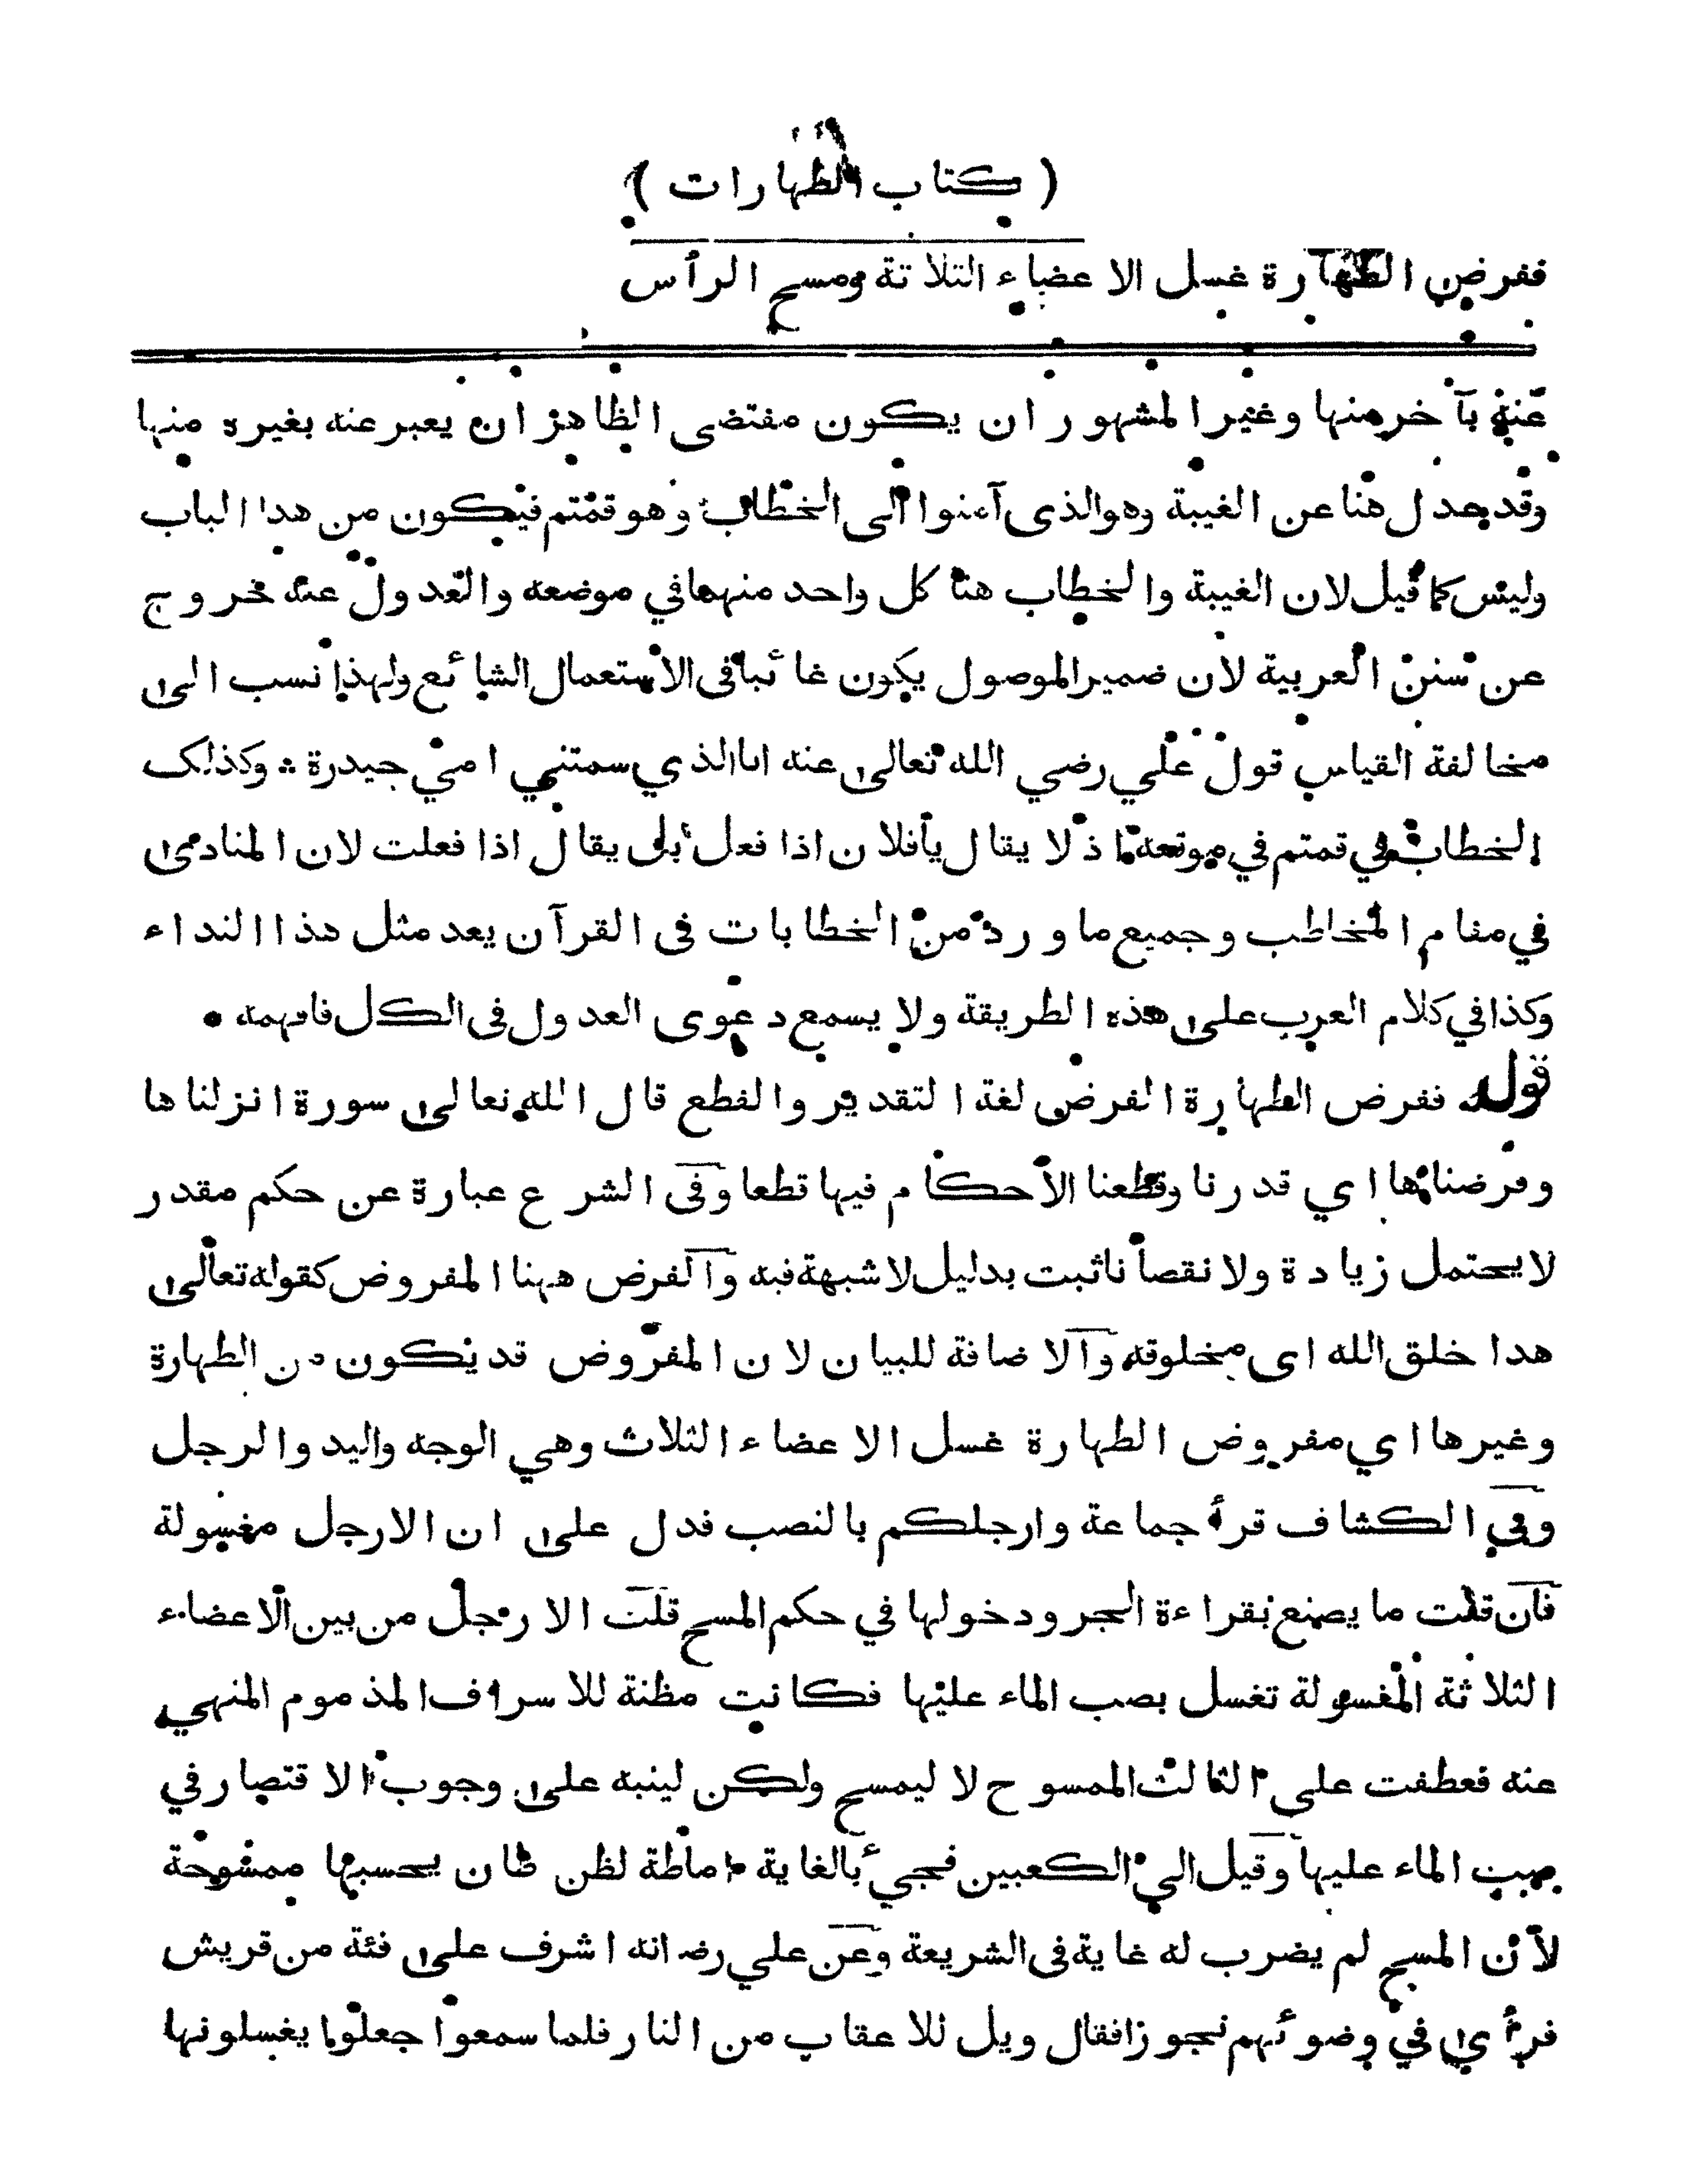 ( كتاب الطهارات )
ففرض الطهارة غسل الاعضاء الثلاثة ومسح الرأس
عنه بآخر منها وغير المشهور ان يكون مقتضى الظاهر ان يعبر عنه بغيره منها
وقد عدل هنا عن الغيبة وهو الذى آمنوا الى الخطاب وهو قمتم فيكون من هذا الباب
وليس كما قيل لان الغيبة والخطاب هنا كل واحد منهما في موضعه والعدول عنه خروج
عن سنن العربية لان ضمير الموصول يكون غائبا فى الاستعمال الشائع ولهذا نسب الى
مخالفة القياس قول علي رضي الله تعالى عنه انا الذي سمتني امي حيدرة * وكذلك
الخطاب في قمتم في موقعه اذ لا يقال يا فلان اذا فعل بلى يقال اذا فعلت لان المنادى
في مقام المخاطب وجميع ما ورد من الخطابات فى القرآن يعد مثل هذا النداء
وكذا في كلام العرب على هذه الطريقة ولا يسمع دعوى العدول فى الكل فافهمه •
قوله ففرض الطهارة الفرض لغة التقدير والقطع قال الله تعالى سورة انزلناها
وفرضناها اي قدرنا وقطعنا الاحكام فيها قطعا وفى الشرع عبارة عن حكم مقدر
لا يحتمل زيادة ولا نقصانا ثبت بدليل لا شبهة فيه والفرض ههنا المفروض كقوله تعالى
هذا خلق الله اى مخلوقه والاضافة للبيان لان المفروض قد يكون من الطهارة
وغيرها اي مفروض الطهارة غسل الاعضاء الثلاث وهي الوجه واليد والرجل
وفي الكشاف قرأ جماعة وارجلكم بالنصب فدل على ان الارجل مغسولة
فان قلت ما يصنع بقراءة الجر ودخولها في حكم المسح قلت الارجل من بين الاعضاء
الثلاثة المغسولة تغسل بصب الماء عليها فكانت مظنة للاسراف المذموم المنهي
عنه فعطفت علي الثالث الممسوح لا ليمسح ولكن لينبه على وجوب الاقتصار في
صب الماء عليها وقيل الي الكعبين فجيء بالغاية اماطة لظن ظان يحسبها ممسوحة
لان المسح لم يضرب له غاية فى الشريعة وعن علي رضـ انه اشرف على فئة من قريش
فرأى في وضوئهم تجوزا فقال ويل للاعقاب من النار فلما سمعوا جعلوا يغسلونها